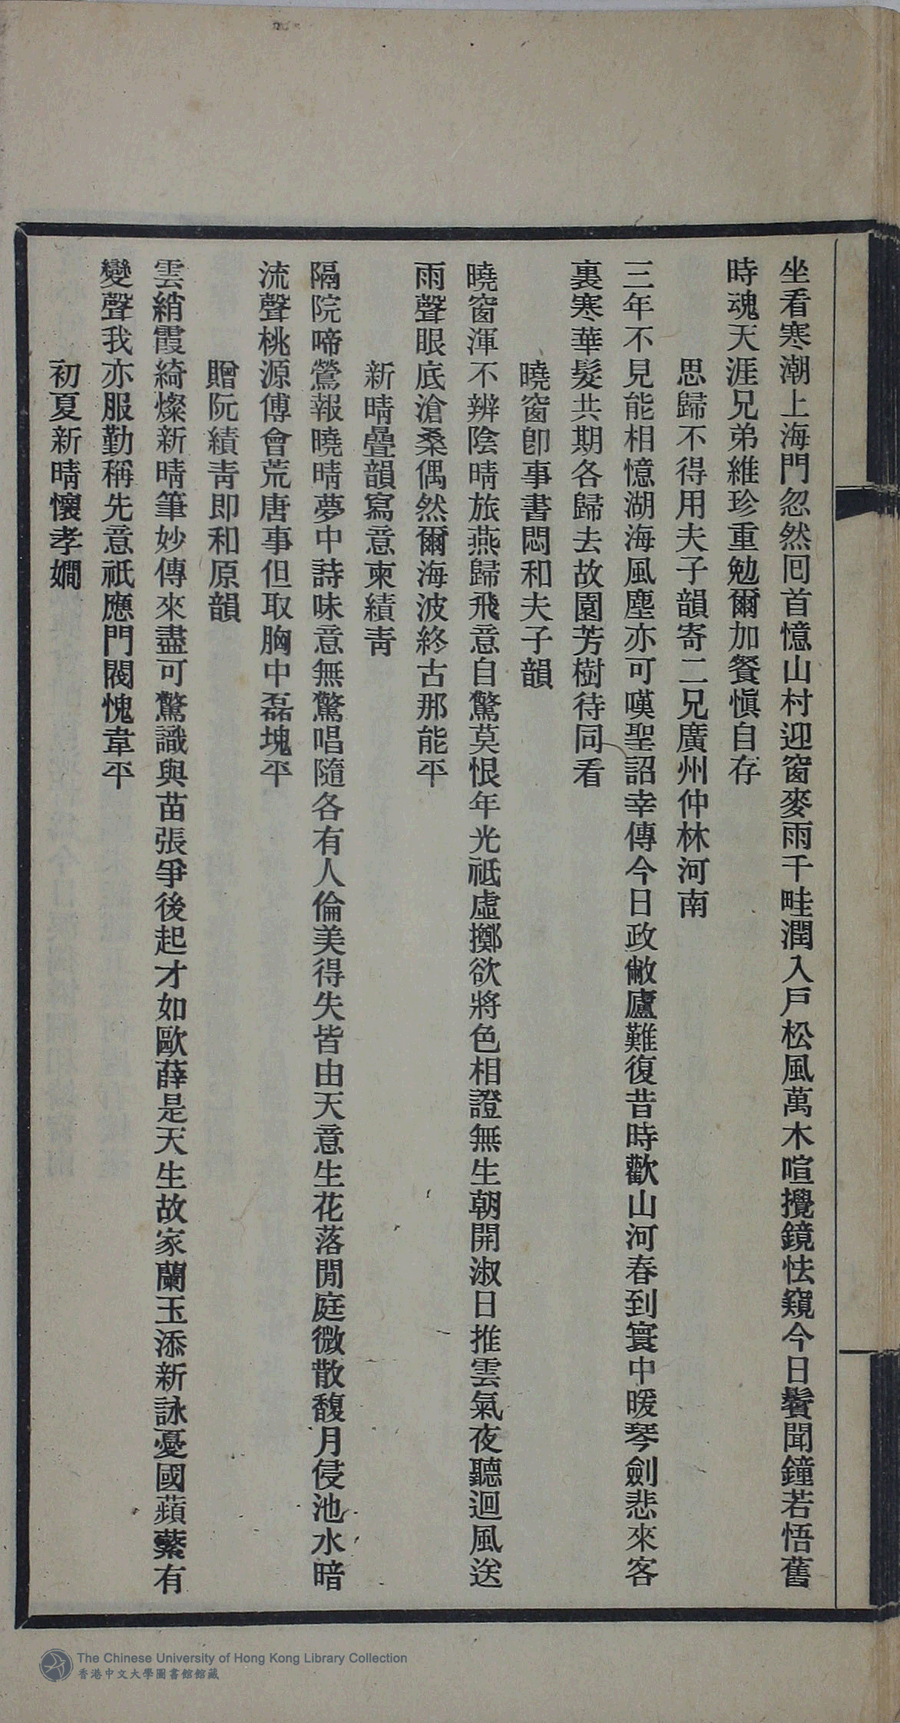 坐看寒潮上海門忽然囘首憶山村迎窗麥雨千畦潤入戶松風萬木喧攪鏡怯窺今日鬢聞鐘若悟舊
時魂天涯兄弟維珍重勉爾加餐愼自存
思歸不得用夫子韻寄二兄廣州仲林河南
三年不見能相憶湖海風塵亦可嘆聖詔幸傳今日政敝廬難復昔時歡山河春到寰中暖琴劍悲來客
裏寒華髮共期各歸去故園芳樹待同看
曉窗卽事書悶和夫子韻
曉窗渾不辨陰晴旅燕歸飛意自驚莫恨年光祗虛擲欲將色相證無生朝開淑日推雲氣夜聽迴風送
雨聲眼底滄桑偶然爾海波終古那能平
新晴疊韻寫意柬績靑
隔院啼鶯報曉晴夢中詩味意無驚唱隨各有人倫美得失皆由天意生花落閒庭微散馥月侵池水暗
流聲桃源傅會荒唐事但取胸中磊塊平
贈阮績靑即和原韻
雲綃霞綺燦新晴筆妙傳來盡可驚識與苗張爭後起才如歐薛是天生故家蘭玉添新詠憂國蘋蘩有
變聲我亦服勤稱先意祇應門閥愧韋平
初夏新晴懷孝嫺
The Chinese University of Hong Kong Library Collection
香港中文大學圖書館館藏